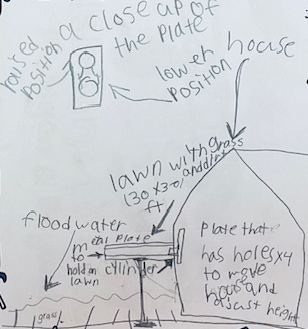 a close up of
the plate
raised
position
lower
position
house
lawn with grass
(30 x 30)
and dirt
ft
flood water
metal plate
to
hold on
lawn
cylinder
Plate that
has holes x4
to move
house and
adjust height
grass